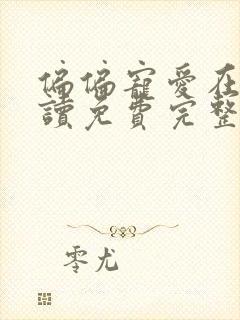 偏偏寵愛在
讀免費完整
零尤